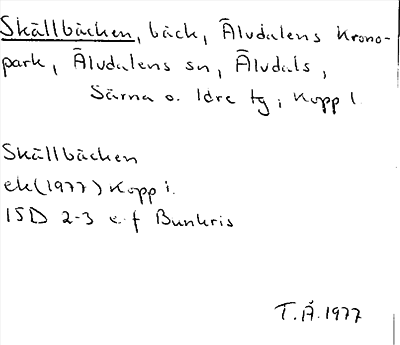 Skällbäcken, bäck, Älvdalens Krono-
park, Älvdalens sn, Älvdals,
Särna o. Idre tg, Kopp l.
Skällbäcken
ek (1977) Kopp l.
15D 2-3 e-f Bunkris
T.Å. 1977